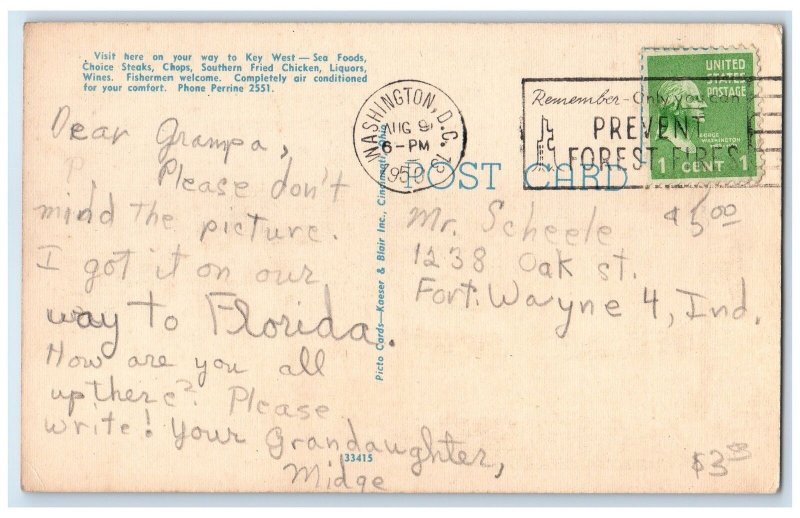 Visit here on your way to Key West — Sea Foods,
Choice Steaks, Chops, Southern Fried Chicken, Liquors,
Wines. Fishermen welcome. Completely air conditioned
for your comfort. Phone Perrine 2551.
Dear Grampa,
Please don't
mind the picture.
I got it on our
way to Florida.
How are you all
up there? Please
write! Your Grandaughter,
Midge
33415
Picto Cards—Kaeser & Blair Inc., Cincinnati, Ohio
POST CARD
WASHINGTON, D.C.
AUG 9
6-PM
1950
Remember-Only you can
PREVENT
FOREST FIRES
UNITED
STATES
POSTAGE
GEORGE
WASHINGTON
1 CENT 1
Mr. Scheele
1238 Oak st.
Fort Wayne 4, Ind.
$5.00
$3.00